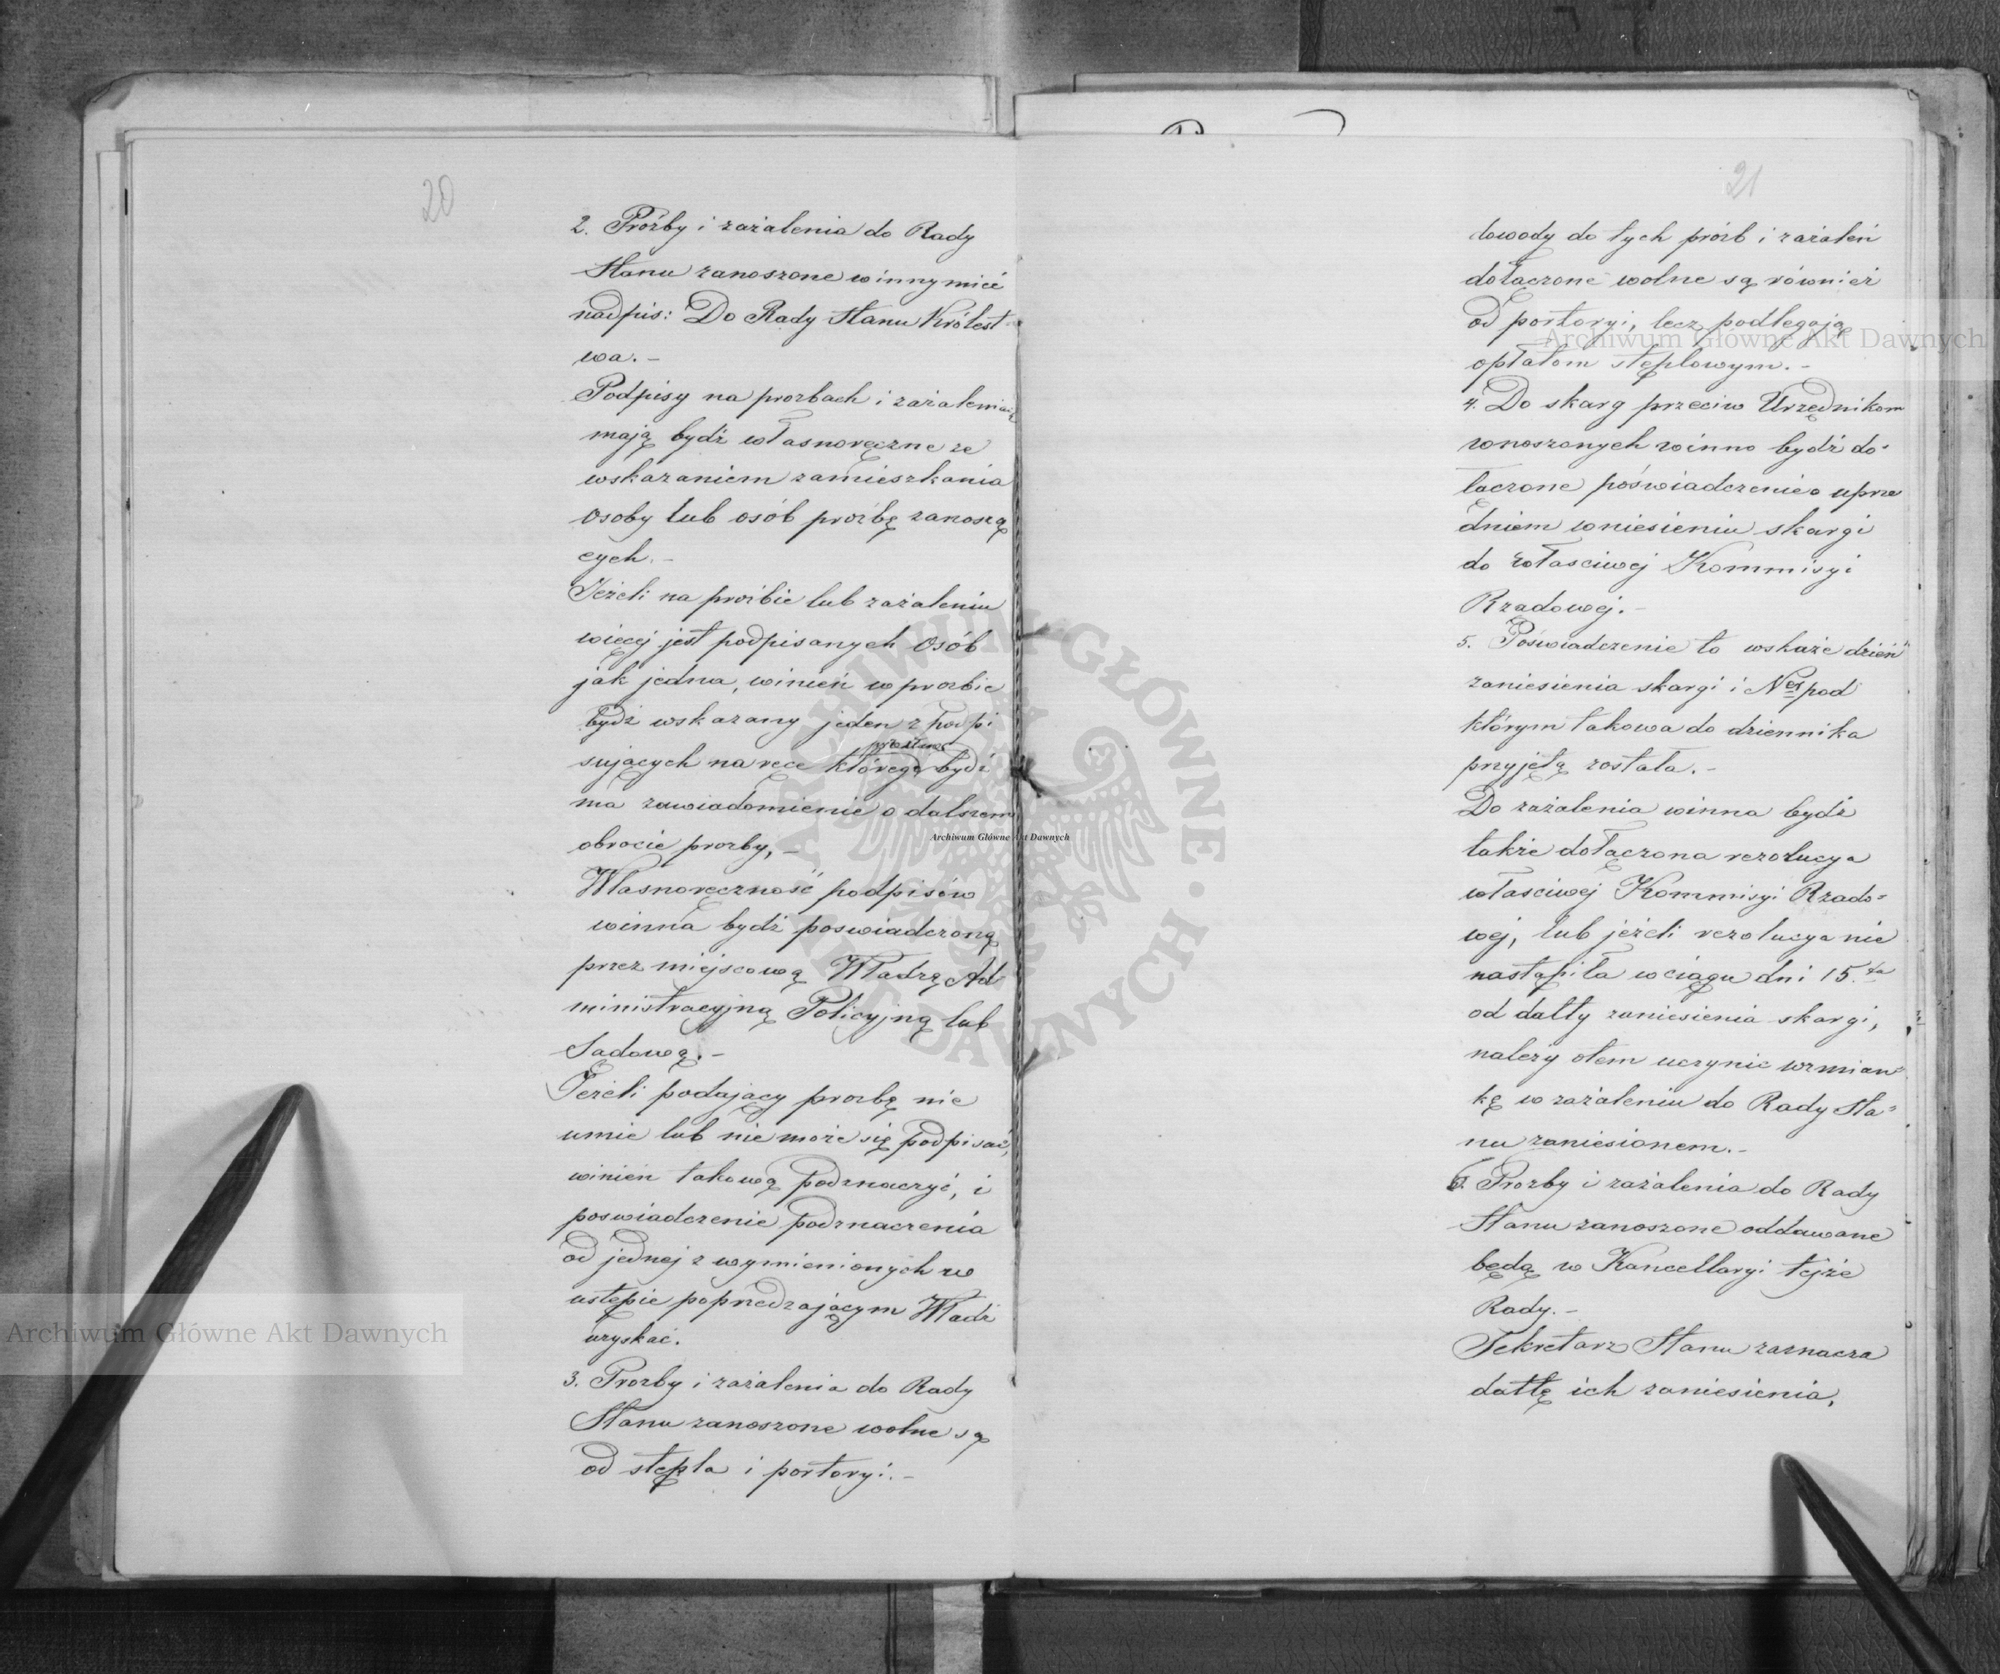 20
2. Prośby i zażalenia do Rady
Stanu zanoszone winny mieć
nadpis: Do Rady Stanu Królest
wa. –
Podpisy na prozbach i zażaleniach
mają bydź własnoręczne ze
wskazaniem zamieszkania
osoby lub osób proźbę zanoszą
cych. –
Jeżeli na proźbie lub zażaleniu
więcej jest podpisanych osób
jak jedna, winień w prozbie
bydź wskazany jeden z podpi
sujących na ręce którego bydź
przesłane
ma zawiadomienie o dalszem
obrocie prozby, –
Własnoręczność podpisów
winna bydź poswiadczoną
przez miejscową Władzę Ad
ministracyjną Policyjną lub
Sadową. –
Jeżeli podający prozbę nie
umie lub nie może się podpisać,
winien takową podznaczyć, i
poswiadczenie podznaczenia
od jednej z wymienionych w
ustępie poprzedzającym Władz
uzyskać.
3. Prozby i zażalenia do Rady
Stanu zanoszone wolne są
od stępla i portoryi. –
21
dowody do tych próźb i zażaleń
dołaczone wolne są również
od portoryi, lecz podlegają
opłatom stęplowym. –
4. Do skarg przeciw Urzędnikom
wnoszonych winno bydź do-
łączone poświadczenie o uprze
dniem wniesieniu skargi
do właściwej Kommisyi
Rządowej. –
5. Poświadczenie to wskaże dzień
zaniesienia skargi i Ner pod
którym takowa do dziennika
przyjętą została. –
Do zażalenia winna bydź
także dołączona rezolucya
właściwej Kommisyi Rzado-
wej, lub jeżeli rezolucya nie
nastąpiła w ciągu dni 15.ta
od datty zaniesienia skargi,
należy otem uczynic wzmian-
kę w zażaleniu do Rady Sta-
nu zaniesionem. –
6. Prozby i zażalenia do Rady
Stanu zanoszone oddawane
będą w Kancellaryi tejże
Rady. –
Sekretarz Stanu zaznacza
dattę ich zaniesienia,
Archiwum Główne Akt Dawnych
Archiwum Główne Akt Dawnych
Archiwum Główne Akt Dawnych
ARCHIWUM GŁÓWNE · AKT DAWNYCH ·